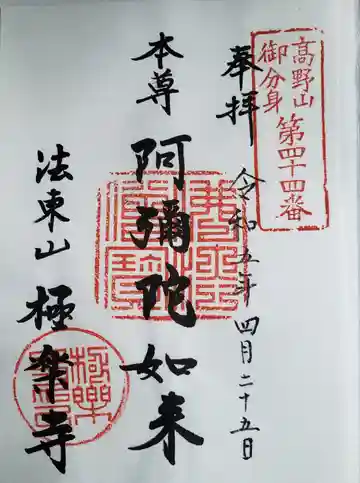 高野山
御分身
第四十四番
奉拝
令和五年四月二十五日
本尊
阿彌陀如来
法東山
極楽寺
極樂